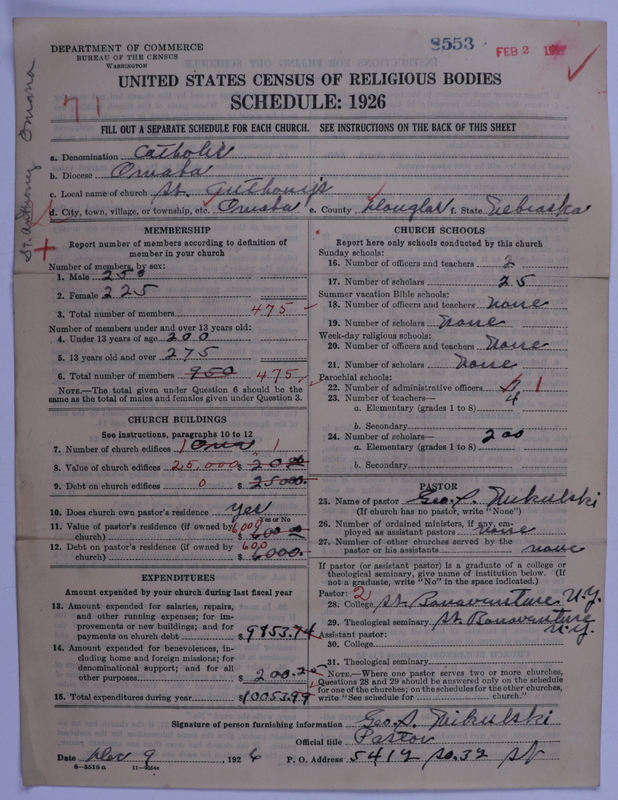 8553
FEB 2
DEPARTMENT OF COMMERCE
BUREAU OF THE CENSUS
WASHINGTON
UNITED STATES CENSUS OF RELIGIOUS BODIES
SCHEDULE: 1926
71
St. Anthony Omaha
FILL OUT A SEPARATE SCHEDULE FOR EACH CHURCH. SEE INSTRUCTIONS ON THE BACK OF THIS SHEET
a. Denomination Catholic
b. Diocese Omaha
c. Local name of church St. Anthony's
d. City, town, village, or township, etc. Omaha e. County Douglas f. State Nebraska
MEMBERSHIP
Report number of members according to definition of
member in your church
Number of members, by sex:
1. Male 250
2. Female 225
3. Total number of members 475
Number of members under and over 13 years old:
4. Under 13 years of age 200
5. 13 years old and over 275
6. Total number of members 950 475
NOTE.—The total given under Question 6 should be the
same as the total of males and females given under Question 3.
CHURCH BUILDINGS
See instructions, paragraphs 10 to 12
7. Number of church edifices 1 One 1
8. Value of church edifices 25,000 $
9. Debt on church edifices 0 $ 25000.
10. Does church own pastor's residence? Yes
Yes or No
11. Value of pastor's residence (if owned by
church) 6000 $
12. Debt on pastor's residence (if owned by
church) 600 $ 6000.
EXPENDITURES
Amount expended by your church during last fiscal year
13. Amount expended for salaries, repairs,
and other running expenses; for im-
provements or new buildings; and for
payments on church debt $ 9853.74
14. Amount expended for benevolences, in-
cluding home and foreign missions; for
denominational support; and for all
other purposes $ 200.25
15. Total expenditures during year $ 10053.99
CHURCH SCHOOLS
Report here only schools conducted by this church
Sunday schools:
16. Number of officers and teachers 2
17. Number of scholars 25
Summer vacation Bible schools:
18. Number of officers and teachers none
19. Number of scholars none
Week-day religious schools:
20. Number of officers and teachers none
21. Number of scholars none
Parochial schools:
22. Number of administrative officers 1
23. Number of teachers— 4
a. Elementary (grades 1 to 8)
b. Secondary
24. Number of scholars— 200
a. Elementary (grades 1 to 8)
b. Secondary
PASTOR
25. Name of pastor Geo. S. Mikulski
(If church has no pastor, write "None")
26. Number of ordained ministers, if any, em-
ployed as assistant pastors none
27. Number of other churches served by the
pastor or his assistants none
If pastor (or assistant pastor) is a graduate of a college or
theological seminary, give name of institution below. (If
not a graduate, write "No" in the space indicated.)
Pastor: 2
28. College St. Bonaventure N.Y.
29. Theological seminary St. Bonaventure
N.Y.
Assistant pastor:
30. College
31. Theological seminary
NOTE.—Where one pastor serves two or more churches,
Questions 28 and 29 should be answered only on the schedule
for one of the churches; on the schedules for the other churches,
write "See schedule for church."
Signature of person furnishing information Geo. S. Mikulski
Official title Pastor
Date Dec 9, 1926 P. O. Address 5412 So. 32 St
8—5518a